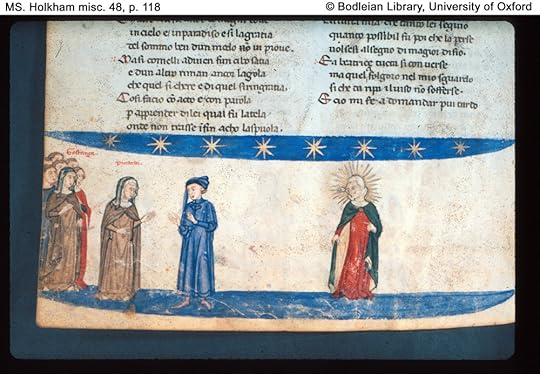 MS. Holkham misc. 48, p. 118
© Bodleian Library, University of Oxford
in cielo e inparadiso e si lagratia
del sommo ben dun modo no in piove.
Ma si comelli adiuen sun cibo satia
e dun altro riman ancor lagola
che quel si chere e di quel si ringratia.
Cosi fecio co acto e con parola
p aprender dilei qual fu latela
onde non trasse ifin acho laspuola.
uista mia che tanto lei seguio
quanto possibil fu poi che la perse
volsesi alsegno di magior disio.
E a beatrice tucta si conuerse
ma quel folgoro nel mio sguardo
si che da il uiso no sofferse.
E cio mi fe a domandar piu tardo